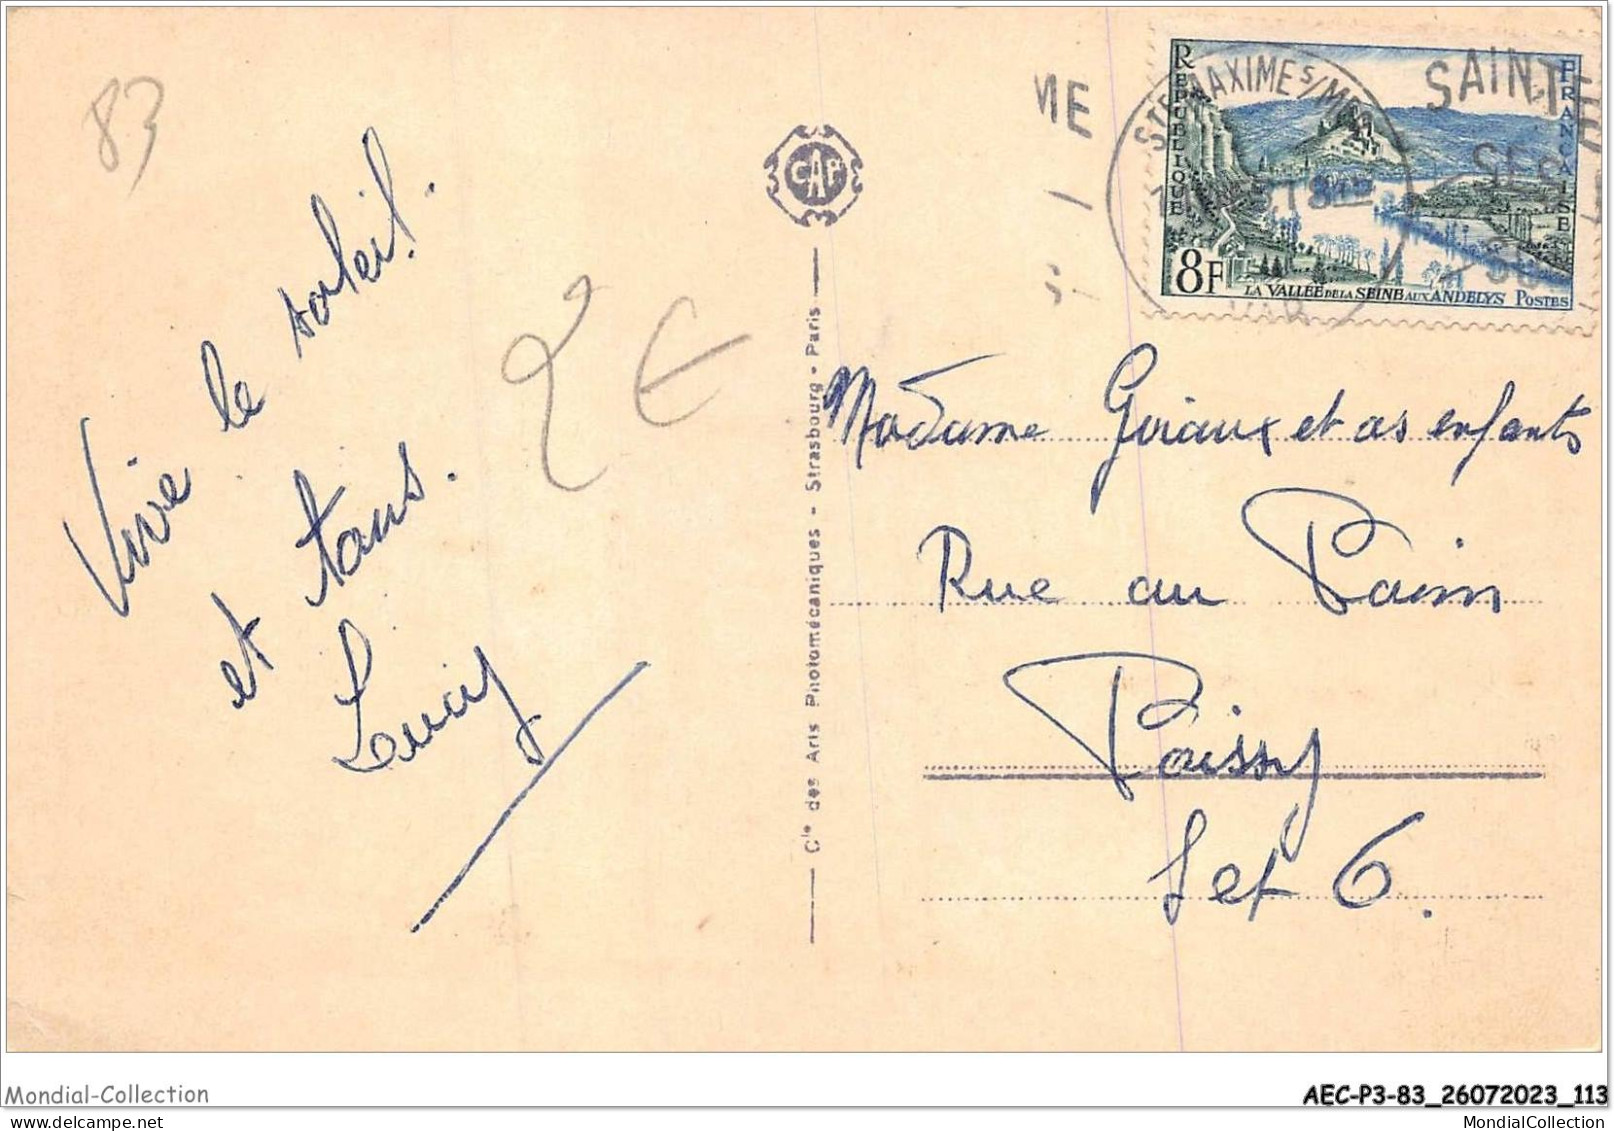 83
Vive le soleil.
et tous.
Lucy
2 €
CAP
Cie des Arts Photomécaniques - Strasbourg - Paris
ME
STE MAXIME S/MER
VAR
SAINTE
SES
REPUBLIQUE
FRANÇAISE
8F
LA VALLÉE DE LA SEINE AUX ANDELYS POSTES
Madame Giriaux et os enfants
Rue au Pain
Poissy
Set 6.
Mondial-Collection
AEC-P3-83_26072023_113
MondialCollection